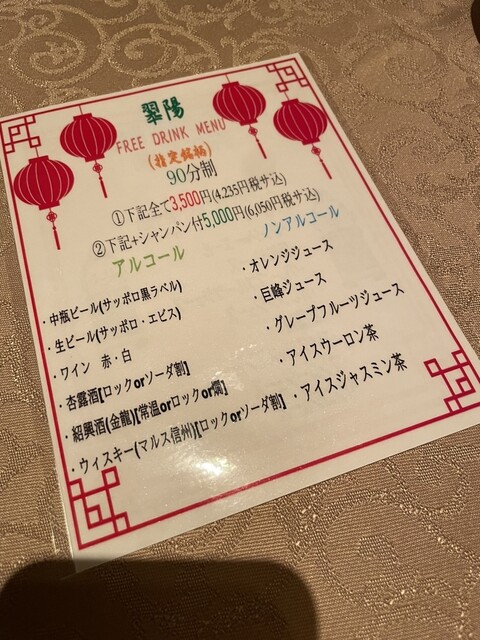 翠陽
FREE DRINK MENU
(指定銘柄)
90分制
①下記全て3,500円(4,235円税サ込)
②下記+シャンパン付5,000円(6,050円税サ込)
アルコール
・中瓶ビール(サッポロ黒ラベル)
・生ビール(サッポロ・エビス)
・ワイン 赤・白
・杏露酒[ロックorソーダ割]
・紹興酒(金龍)[常温orロックor燗]
・ウィスキー(マルス信州)[ロックorソーダ割]
ノンアルコール
・オレンジジュース
・巨峰ジュース
・グレープフルーツジュース
・アイスウーロン茶
・アイスジャスミン茶